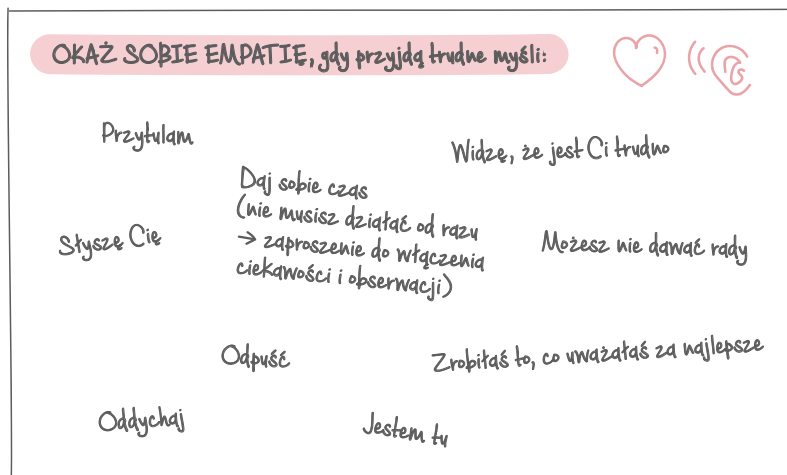 OKAŻ SOBIE EMPATIĘ, gdy przyjdą trudne myśli:
Przytulam
Widzę, że jest Ci trudno
Daj sobie czas
(nie musisz działać od razu
→ zaproszenie do włączenia
ciekawości i obserwacji)
Słyszę Cię
Możesz nie dawać rady
Odpuść
Zrobiłaś to, co uważałaś za najlepsze
Oddychaj
Jestem tu